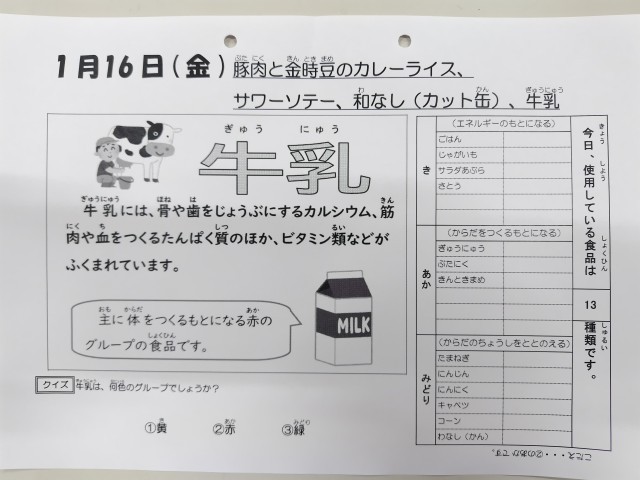 1月16日(金)豚肉と金時豆のカレーライス、
サワーソテー、和なし(カット缶)、牛乳
ぎゅう にゅう
牛乳
牛乳には、骨や歯をじょうぶにするカルシウム、筋
肉や血をつくるたんぱく質のほか、ビタミン類などが
ふくまれています。
主に体をつくるもとになる赤の
グループの食品です。
MILK
クイズ 牛乳は、何色のグループでしょうか?
①黄 ②赤 ③緑
き
(エネルギーのもとになる)
ごはん
じゃがいも
サラダあぶら
さとう
あか
(からだをつくるもとになる)
ぎゅうにゅう
ぶたにく
きんときまめ
みどり
(からだのちょうしをととのえる)
たまねぎ
にんじん
にんにく
キャベツ
コーン
わなし(かん)
今日、使用している食品は
13
種類です。
こたえ・・・②のあかです。